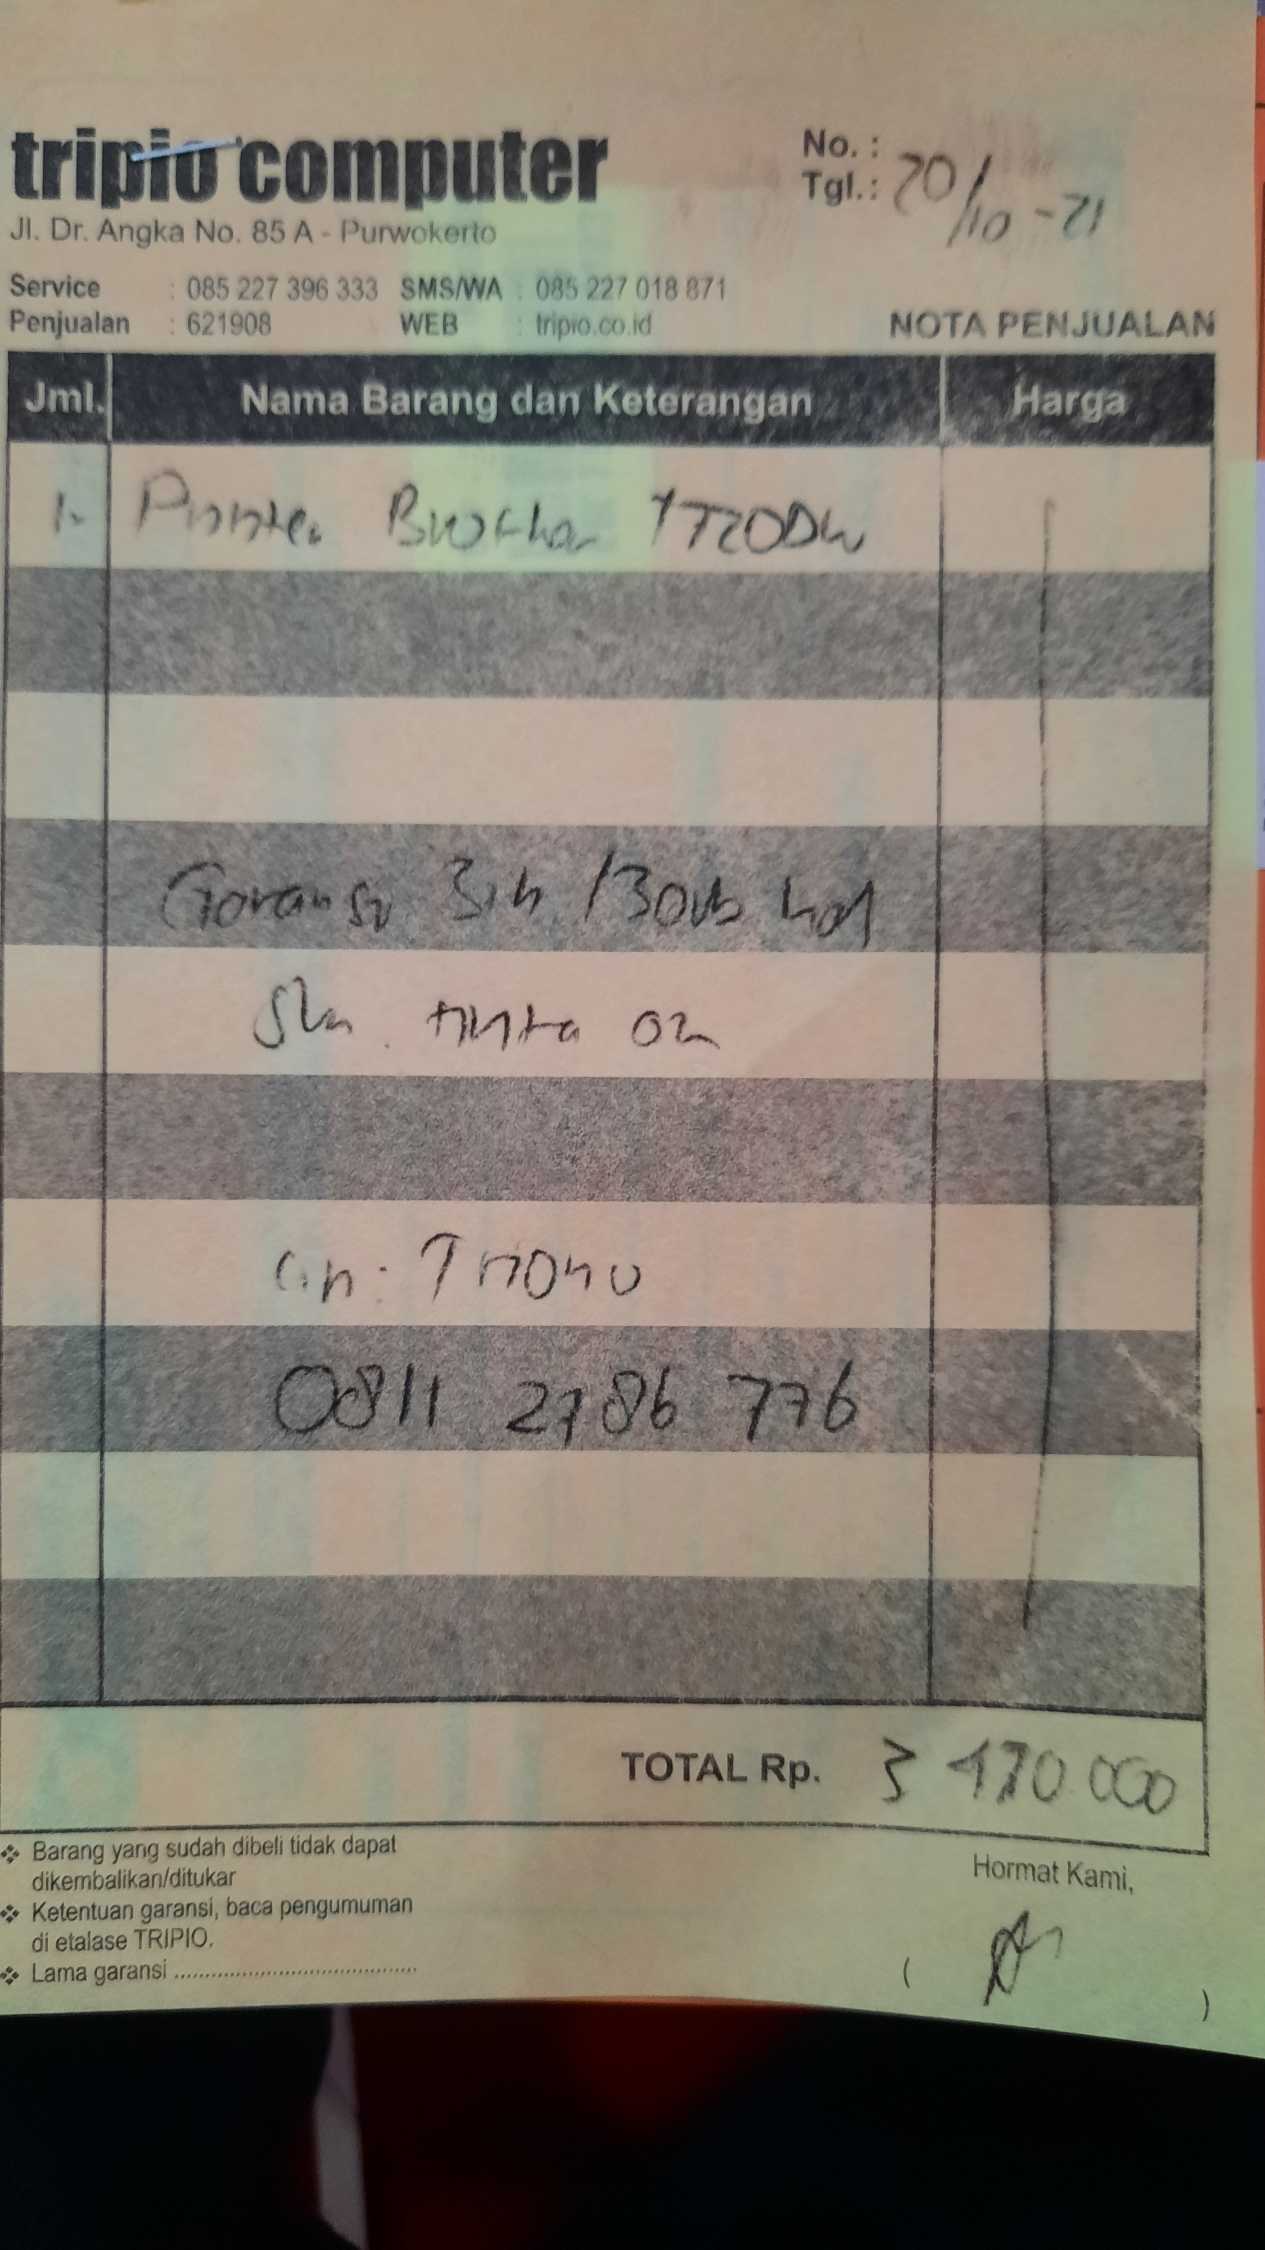 tripio computer
Jl. Dr. Angka No. 85 A - Purwokerto
No. :
Tgl. : 20/10-21
Service : 085 227 396 333 SMS/WA : 085 227 018 871
Penjualan : 621908 WEB : tripio.co.id
NOTA PENJUALAN
Jml. Nama Barang dan Keterangan Harga
1. Printer Brother T720DW
Garansi 3th /30rb
tinta
an: Triono
0811 2786 776
TOTAL Rp. 3 470.000
❖ Barang yang sudah dibeli tidak dapat
dikembalikan/ditukar
❖ Ketentuan garansi, baca pengumuman
di etalase TRIPIO.
❖ Lama garansi ..........................................
Hormat Kami,
( )